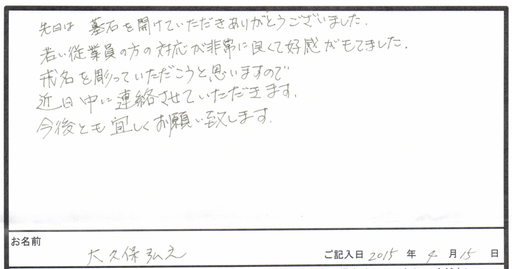 先日は 墓石を開けていただきありがとうございました.
若い従業員の方の対応が非常に良くて好感がもてました.
戒名を彫っていただこうと思いますので
近日中に連絡させていただきます.
今後とも宜しくお願い致します.
お名前 大久保弘之 ご記入日 2015 年 4 月 15 日